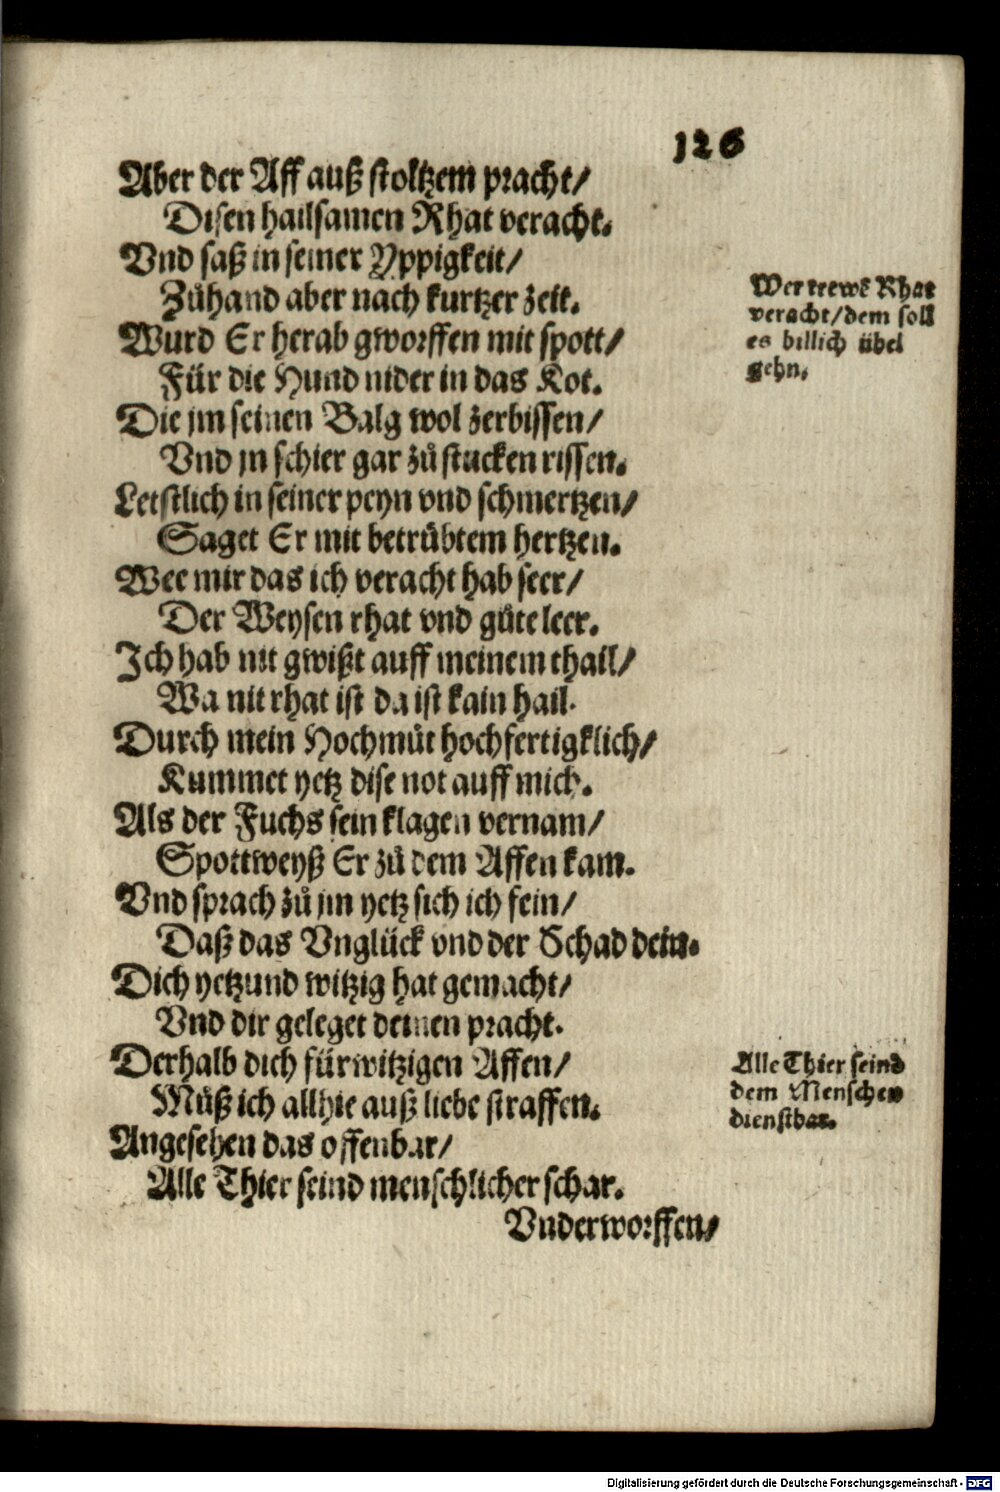 126
Aber der Aff auß stoltzem pracht/
Disen hailsamen Rhat veracht.
Vnd saß in seiner Yppigkeit/
Zůhand aber nach kurtzer zeit.
Wurd Er herab gworffen mit spott/
Für die Hund nider in das Kot.
Die jm seinen Balg wol zerbissen/
Vnd jn schier gar zů stucken rissen.
Letstlich in seiner peyn vnd schmertzen/
Saget Er mit betrůbtem hertzen.
Wee mir das ich veracht hab seer/
Der Weysen rhat vnd gůte leer.
Ich hab nit gwißt auff meinem thail/
Wa nit rhat ist da ist kain hail.
Durch mein Hochmůt hochfertigklich/
Kummet yetz dise not auff mich.
Als der Fuchs sein klagen vernam/
Spottweyß Er zů dem Affen kam.
Vnd sprach zů jm yetz sich ich fein/
Daß das Vnglück vnd der Schad dein.
Dich yetzund witzig hat gemacht/
Vnd dir geleget deinen pracht.
Derhalb dich fürwitzigen Affen/
Můß ich allhie auß liebe straffen.
Angesehen das offenbar/
Alle Thier seind menschlicher schar.
Vnderworffen/
Wer trewe Rhat
veracht/dem soll
es billich übel
gehn.
Alle Thier seind
dem Menschen
dienstbar.
Digitalisierung gefördert durch die Deutsche Forschungsgemeinschaft - DFG